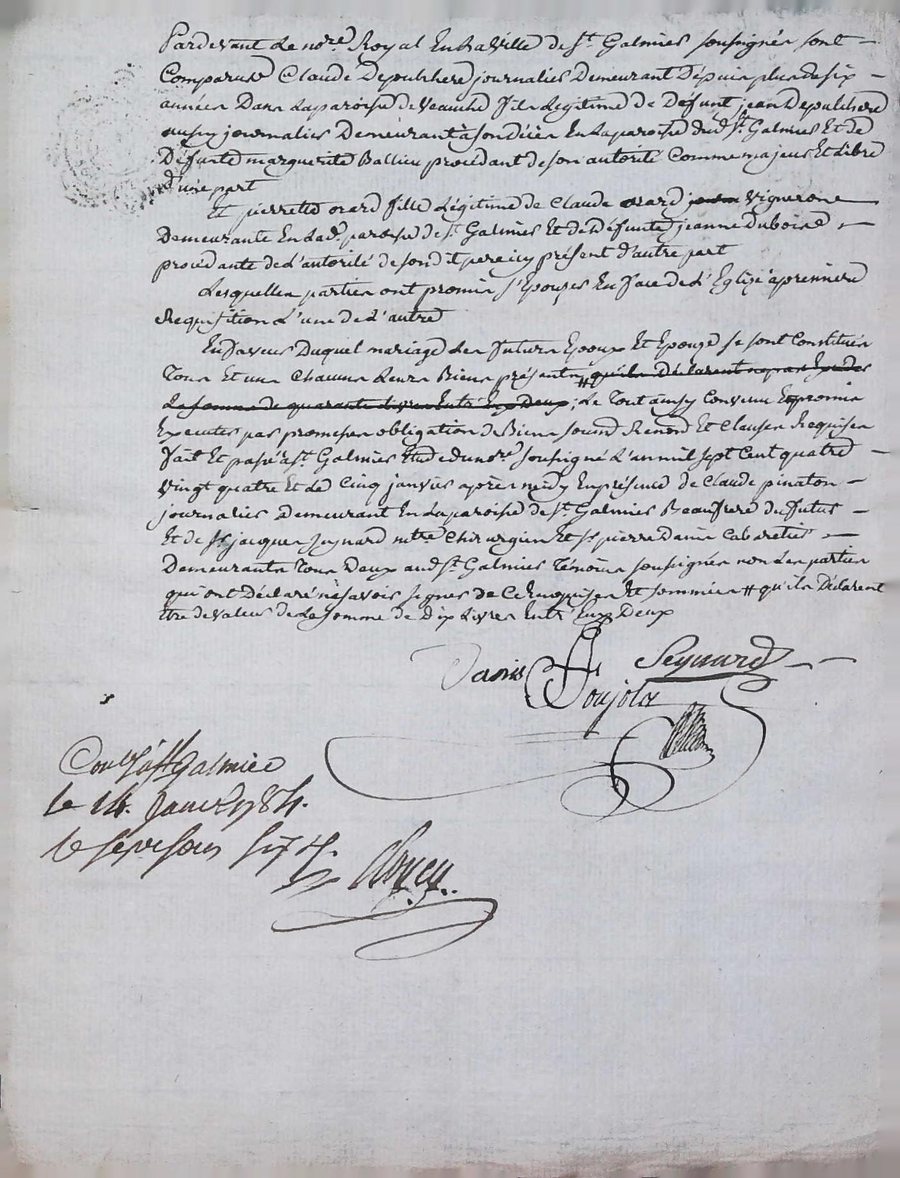 Pardevant Le nore Royal En La Ville de St Galmier soussignés sont
Comparus Claude Depulchere journalier Demeurant Depuis plus de six
années Dans La paroisse de Veauche fils Legitime de Deffunt jean Depulchere
aussy journalier Demeurant à son décès En La paroisse dud St Galmier Et de
Deffunte marguerite Ballieu procédant de son autorité Comme majeur Et Libre
d'une part
Et pierrette orard fille Légitime de Claude orard Vigneron
Demeurante En Lad. paroisse de St Galmier Et de Deffunte jeanne Dubois
procédante de L'autorité de son dit pere icy présent d'autre part
Lesquelles parties ont promis s'Epouser En face de L'Eglise à premiere
Requisition L'une de L'autre
En faveur Duquel mariage Les futurs Epoux Et Epouse se sont Constitués
Tous Et uns Chacuns Leurs Biens présents # qu'ils Déclarent
La somme de quarante Livres Entr'Eux Deux ; Le Tout ainsy Convenu Et promis
Executer par promesses obligation de Biens soumis Renonc Et Clauses Requises
fait Et passé à St Galmier Etude du nore soussigné L'an mil sept Cent quatre
Vingt quatre Et Le Cinq janvier après midy En présence de Claude pinaton
journalier Demeurant En La paroisse de St Galmier Beaufrere du futur
Et de Sr jacques Seynard mtre Chirurgien Et Sr pierre Danis Cabaretier
Demeurants Tous Deux aud St Galmier Témoins soussignés non Les parties
qui ont Déclaré ne savoir signer de Ce Enquises Et sommées # qu'ils Déclarent
Etre de valeur de La somme de Dix Livres Entr'Eux Deux
Danis Seynard
Poujola
Conlé à St Galmier
le 14. Janvr 1784.